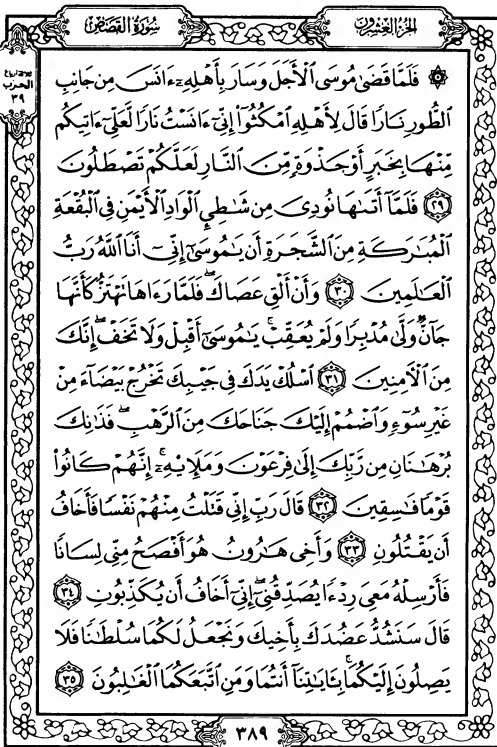 الجزء العشرون
سورة القصص
ثلاثة أرباع
الحزب
٣٩
۞ فَلَمَّا قَضَىٰ مُوسَى ٱلْأَجَلَ وَسَارَ بِأَهْلِهِۦٓ ءَانَسَ مِن جَانِبِ
ٱلطُّورِ نَارًا قَالَ لِأَهْلِهِ ٱمْكُثُوٓا۟ إِنِّىٓ ءَانَسْتُ نَارًا لَّعَلِّىٓ ءَاتِيكُم
مِّنْهَا بِخَبَرٍ أَوْ جَذْوَةٍ مِّنَ ٱلنَّارِ لَعَلَّكُمْ تَصْطَلُونَ
٢٩ فَلَمَّآ أَتَىٰهَا نُودِىَ مِن شَـٰطِئِ ٱلْوَادِ ٱلْأَيْمَنِ فِى ٱلْبُقْعَةِ
ٱلْمُبَـٰرَكَةِ مِنَ ٱلشَّجَرَةِ أَن يَـٰمُوسَىٰٓ إِنِّىٓ أَنَا ٱللَّهُ رَبُّ
ٱلْعَـٰلَمِينَ ٣٠ وَأَنْ أَلْقِ عَصَاكَ ۖ فَلَمَّا رَءَاهَا تَهْتَزُّ كَأَنَّهَا
جَآنٌّ وَلَّىٰ مُدْبِرًا وَلَمْ يُعَقِّبْ ۚ يَـٰمُوسَىٰٓ أَقْبِلْ وَلَا تَخَفْ ۖ إِنَّكَ
مِنَ ٱلْـَٔامِنِينَ ٣١ ٱسْلُكْ يَدَكَ فِى جَيْبِكَ تَخْرُجْ بَيْضَآءَ مِنْ
غَيْرِ سُوٓءٍ وَٱضْمُمْ إِلَيْكَ جَنَاحَكَ مِنَ ٱلرَّهْبِ ۖ فَذَٰنِكَ
بُرْهَـٰنَانِ مِن رَّبِّكَ إِلَىٰ فِرْعَوْنَ وَمَلَإِي۟هِۦٓ ۚ إِنَّهُمْ كَانُوا۟
قَوْمًا فَـٰسِقِينَ ٣٢ قَالَ رَبِّ إِنِّى قَتَلْتُ مِنْهُمْ نَفْسًا فَأَخَافُ
أَن يَقْتُلُونِ ٣٣ وَأَخِى هَـٰرُونُ هُوَ أَفْصَحُ مِنِّى لِسَانًا
فَأَرْسِلْهُ مَعِىَ رِدْءًا يُصَدِّقُنِىٓ ۖ إِنِّىٓ أَخَافُ أَن يُكَذِّبُونِ ٣٤
قَالَ سَنَشُدُّ عَضُدَكَ بِأَخِيكَ وَنَجْعَلُ لَكُمَا سُلْطَـٰنًا فَلَا
يَصِلُونَ إِلَيْكُمَا ۚ بِـَٔايَـٰتِنَآ أَنتُمَا وَمَنِ ٱتَّبَعَكُمَا ٱلْغَـٰلِبُونَ ٣٥
٣٨٩